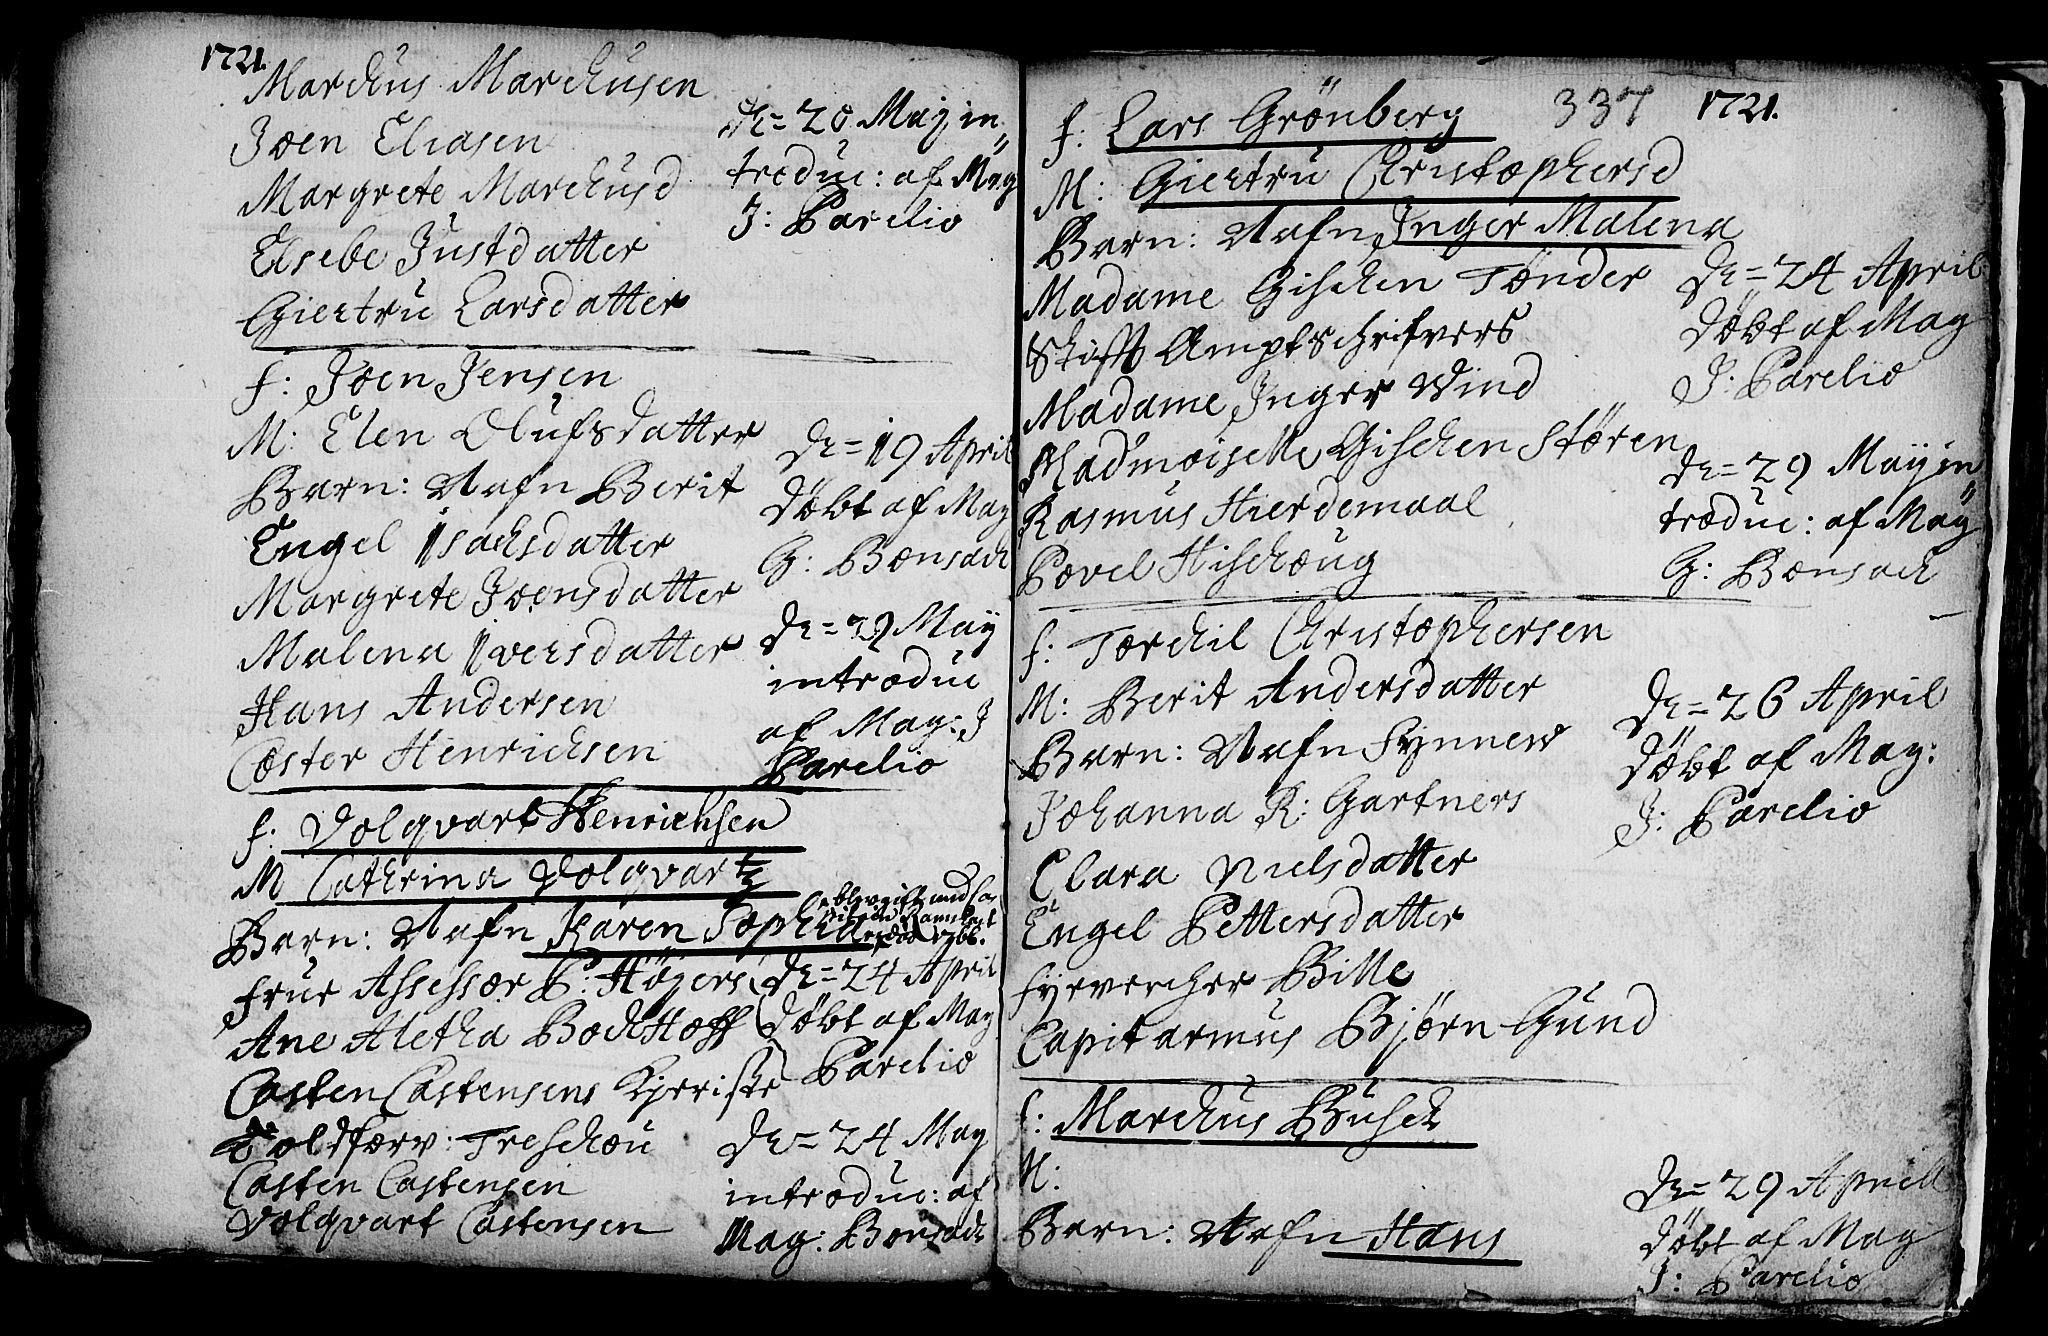 1721.
Marchus Marchusen
Joen Eliasen
Margrete Marchusd
Elsebe Justdatter
Giertru Larsdatter
de= 20 May in
troduc: af Mag
J: Parelio
f: Joen Jensen
M: Elen Olufsdatter
Barn: Nafn Berit
Engel Isachsdatter
Margrete Joensdatter
Malena Iversdatter
Hans Andersen
Coster Henrichsen
de= 19 April
döbt af Mag
G: Bonsach
de= 29 May
introduc
af Mag: J
Parelio
f: Volqvart Henrichsen
M Cathrina Volqvartz
Barn: Nafn Karen Sophia
blev gift med
1766.
Frue Assessor P: Höyers
Ane Aletha Bockhoff
Casten Castensens Kjeriste
Toldforv: Treschou
Casten Castensen
Volqvart Castensen
de= 24 April
döbt af Mag
Parelio
de= 24 May
introduc: af
Mag: Bonsach
337 1721.
f. Lars Grönberg
M: Giertru Christophersd
Barn: Nafn Inger Malena
Madame Gischen Tönder
Stifft Amptschrifvers
Madame Inger Wind
Madmoiselle Gischen Stören
Rasmus Hierdemaal
Povel Hischoug
de= 24 April
döbt af Mag
J: Parelio
de= 29 May in
troduc: af Mag
G: Bonsach
f: Torchil Christophersen
M: Berit Andersdatter
Barn: Nafn Synnew
Johanna R: Gartners
Clara Nielsdatter
Engel Pettersdatter
Fyrvercher Bille
Capit armus Bjørn Gund
de= 26 April
döbt af Mag:
J: Parelio
f: Marchus Busch
M:
Barn: Nafn Hans
de= 29 Aprill
döbt af Mag
J: Parelio